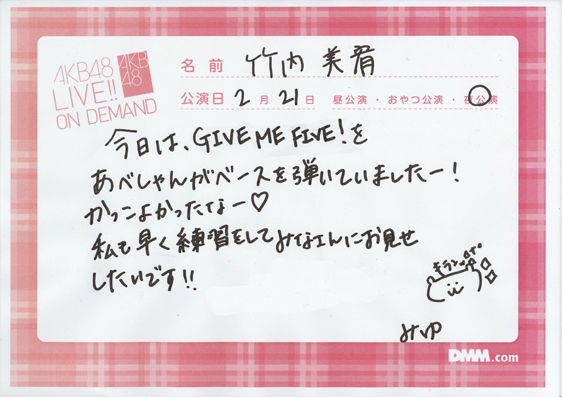 AKB48
LIVE!!
ON DEMAND
AKB
48
名前 竹内 美宥
公演日 2月21日 昼公演・おやつ公演・夜公演
今日は、GIVE ME FIVE!を
あべしゃんがベースを弾いていましたー!
かっこよかったなー♡
私も早く練習をしてみなさんにお見せ
したいです!!
みゆ
DMM.com